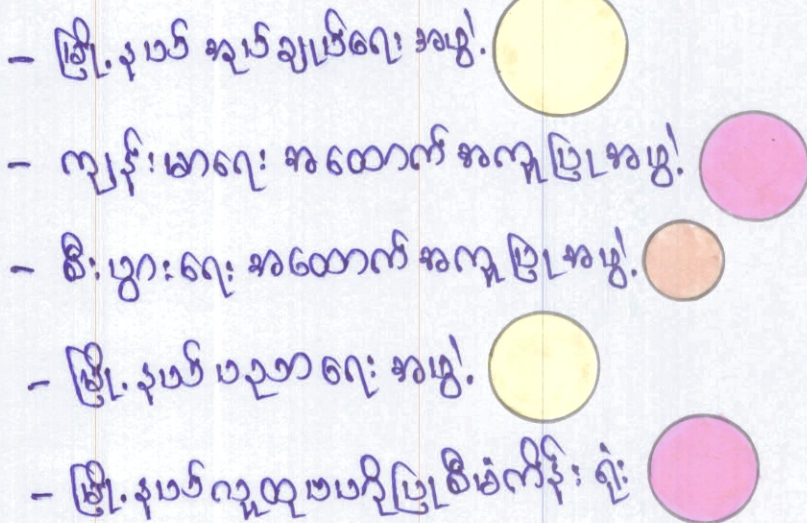 - မြို့နယ် အုပ်ချုပ်ရေး အဖွဲ့.
- ကျန်းမာရေး အထောက် အကူပြုအဖွဲ့.
- စီးပွားရေး အထောက် အကူပြုအဖွဲ့.
- မြို့နယ် ပညာရေး အဖွဲ့.
- မြို့နယ်လူထုဗဟိုပြုစီမံကိန်း ရုံး